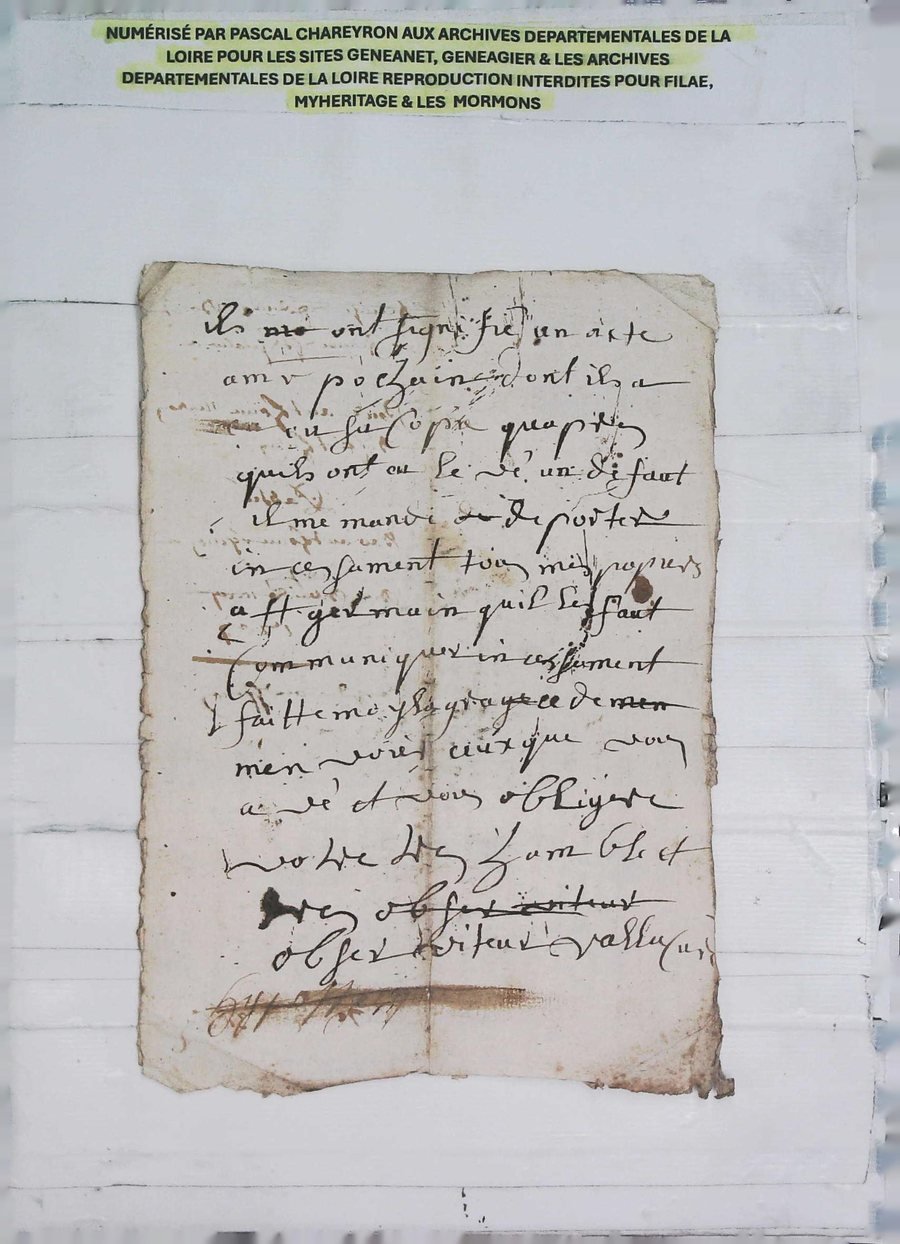 NUMÉRISÉ PAR PASCAL CHAREYRON AUX ARCHIVES DEPARTEMENTALES DE LA
LOIRE POUR LES SITES GENEANET, GENEAGIER & LES ARCHIVES
DEPARTEMENTALES DE LA LOIRE REPRODUCTION INTERDITES POUR FILAE,
MYHERITAGE & LES MORMONS
ils ont signifié un acte
a mr pochain dont il a
eu sa Copie quapres
quils ont eu un defaut
il me mande de porter
incessament tous mes papiers
a st germain quil les faut
Communiquer incessament
faitte moy la grace de
men voier ceux que vous
a vé et vous obligere
votre tres hamble et
tres
obser viteur